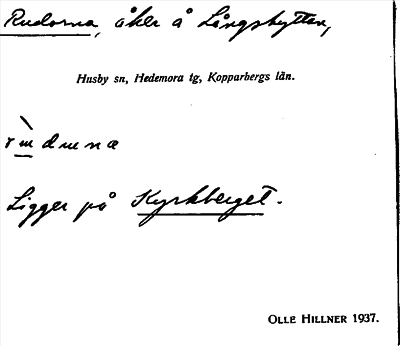 Rudorna, åker å Långshyttan,
Husby sn, Hedemora tg, Kopparbergs län.
Ligger på Kyrkberget.
OLLE HILLNER 1937.